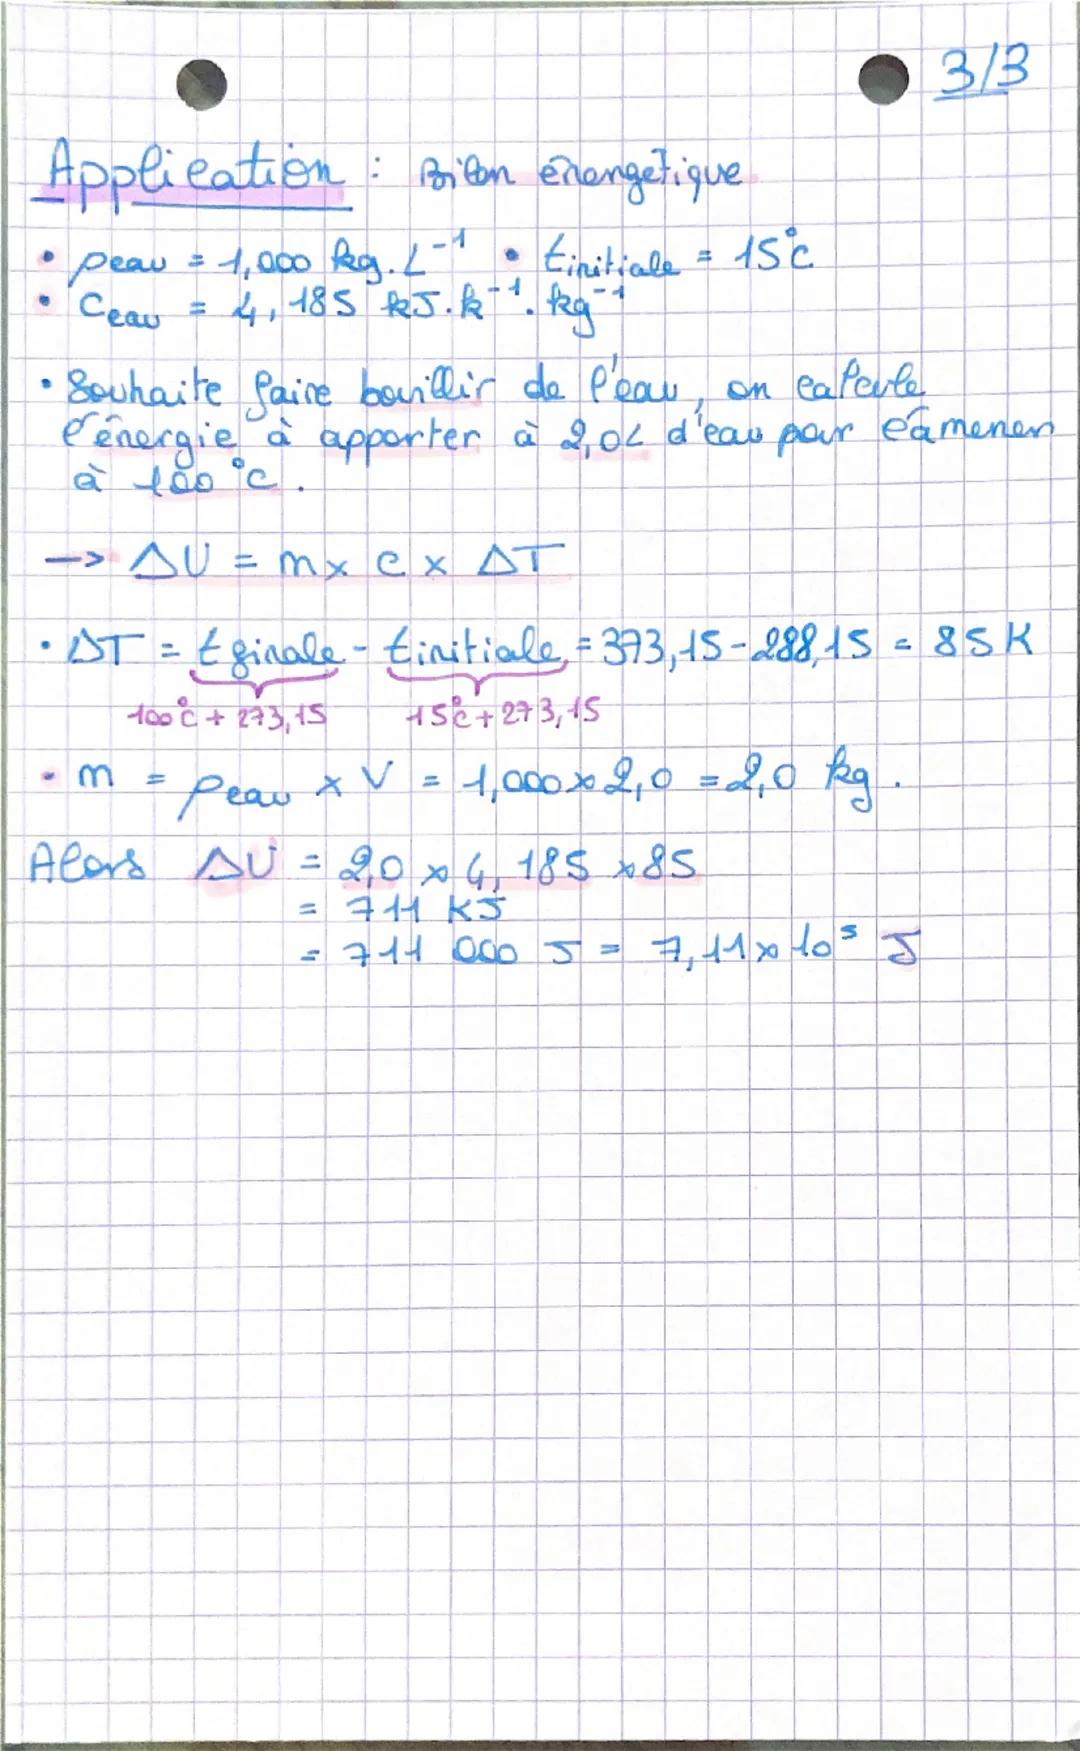 3/3
Application : Bilan énergétique
• ρeau = 1,000 kg.L⁻¹ • tinitiale = 15°C
• Ceau = 4,185 kJ.k⁻¹.kg⁻¹
• Souhaite faire bouillir de l'eau, on calcule
l'énergie à apporter à 2,0L d'eau par l'amener
à 100 °C.
--> ΔU = m x c x ΔT
• ΔT = tfinale - tinitiale = 373,15 - 288,15 = 85 K
100°C + 273,15 15°C + 273,15
• m = ρeau x V = 1,000 x 2,0 = 2,0 kg.
Alors ΔU = 2,0 x 4,185 x 85
= 711 KJ
= 711 000 J = 7,11 x 10⁵ J